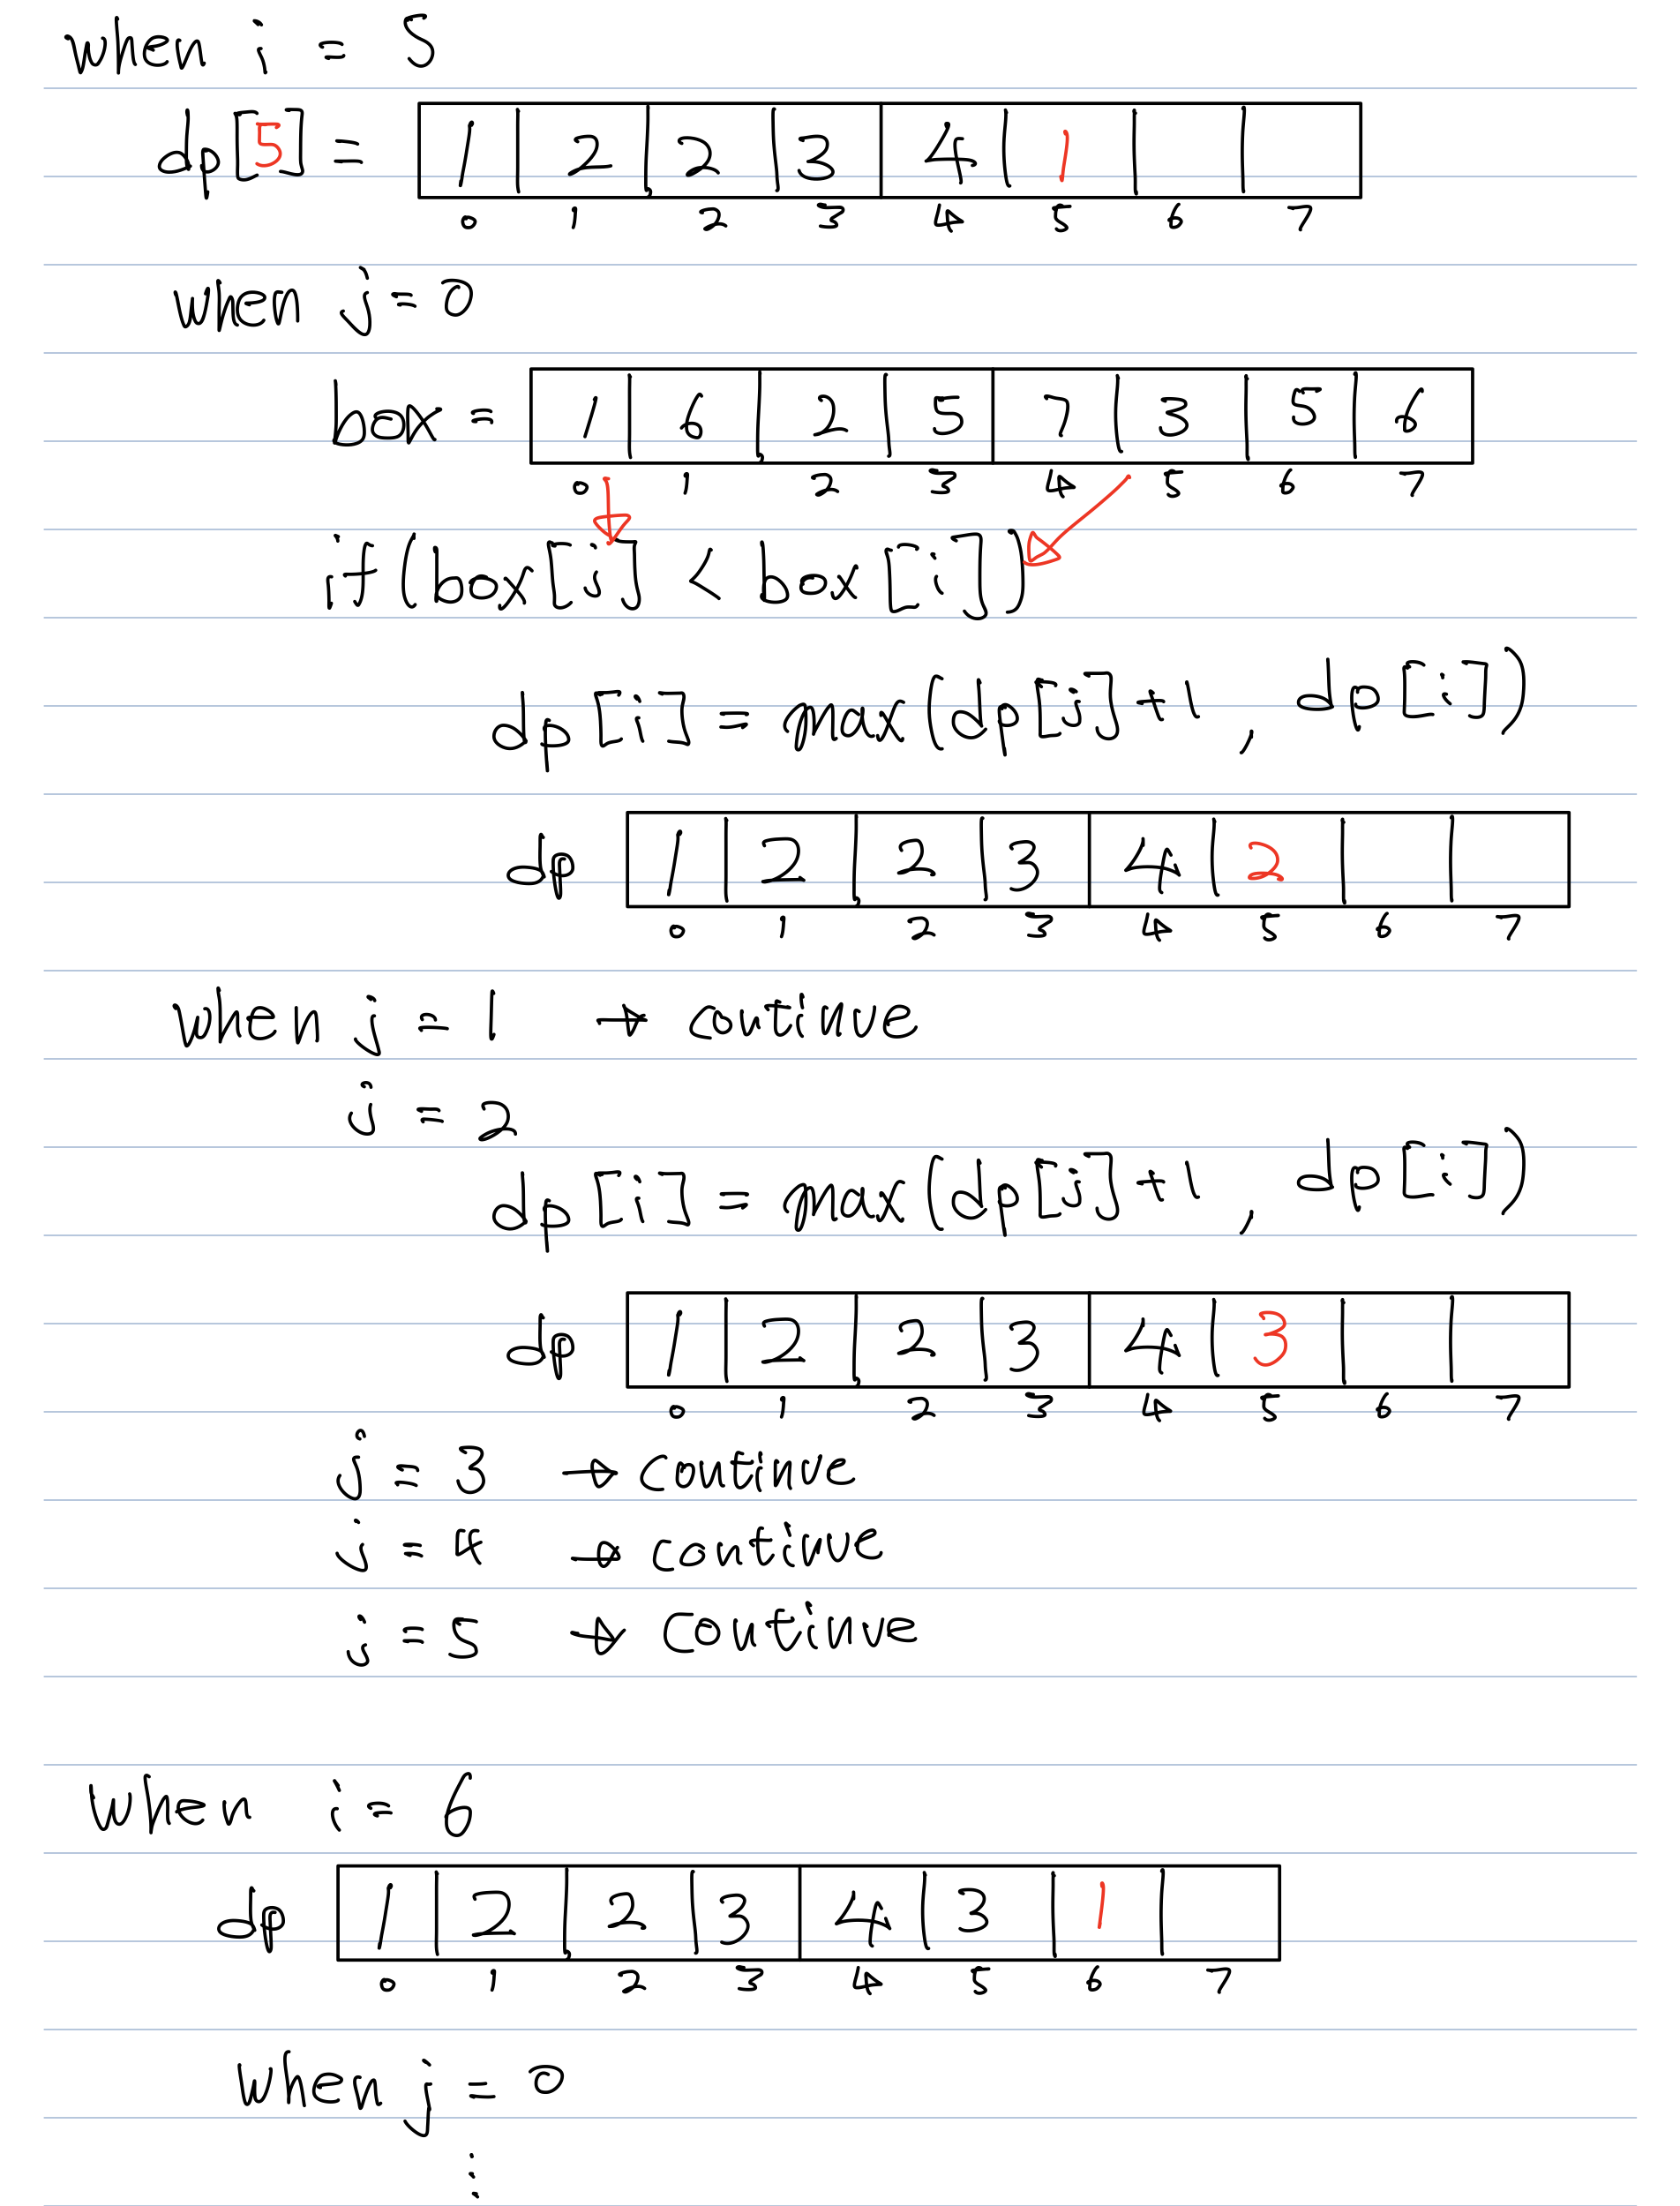 when i = 5
dp[5] = 1 2 2 3 4 1
0 1 2 3 4 5 6 7
when j=0
box = 1 6 2 5 7 3 5 6
0 1 2 3 4 5 6 7
if(box[j] < box[i])
dp[i] = max(dp[j]+1, dp[i])
dp 1 2 2 3 4 2
0 1 2 3 4 5 6 7
when j = 1 → continue
j = 2
dp[i] = max(dp[j]+1, dp[i])
dp 1 2 2 3 4 3
0 1 2 3 4 5 6 7
j = 3 → continue
j = 4 → continue
j = 5 → continue
when i = 6
dp 1 2 2 3 4 3 1
0 1 2 3 4 5 6 7
when j = 0
⋮